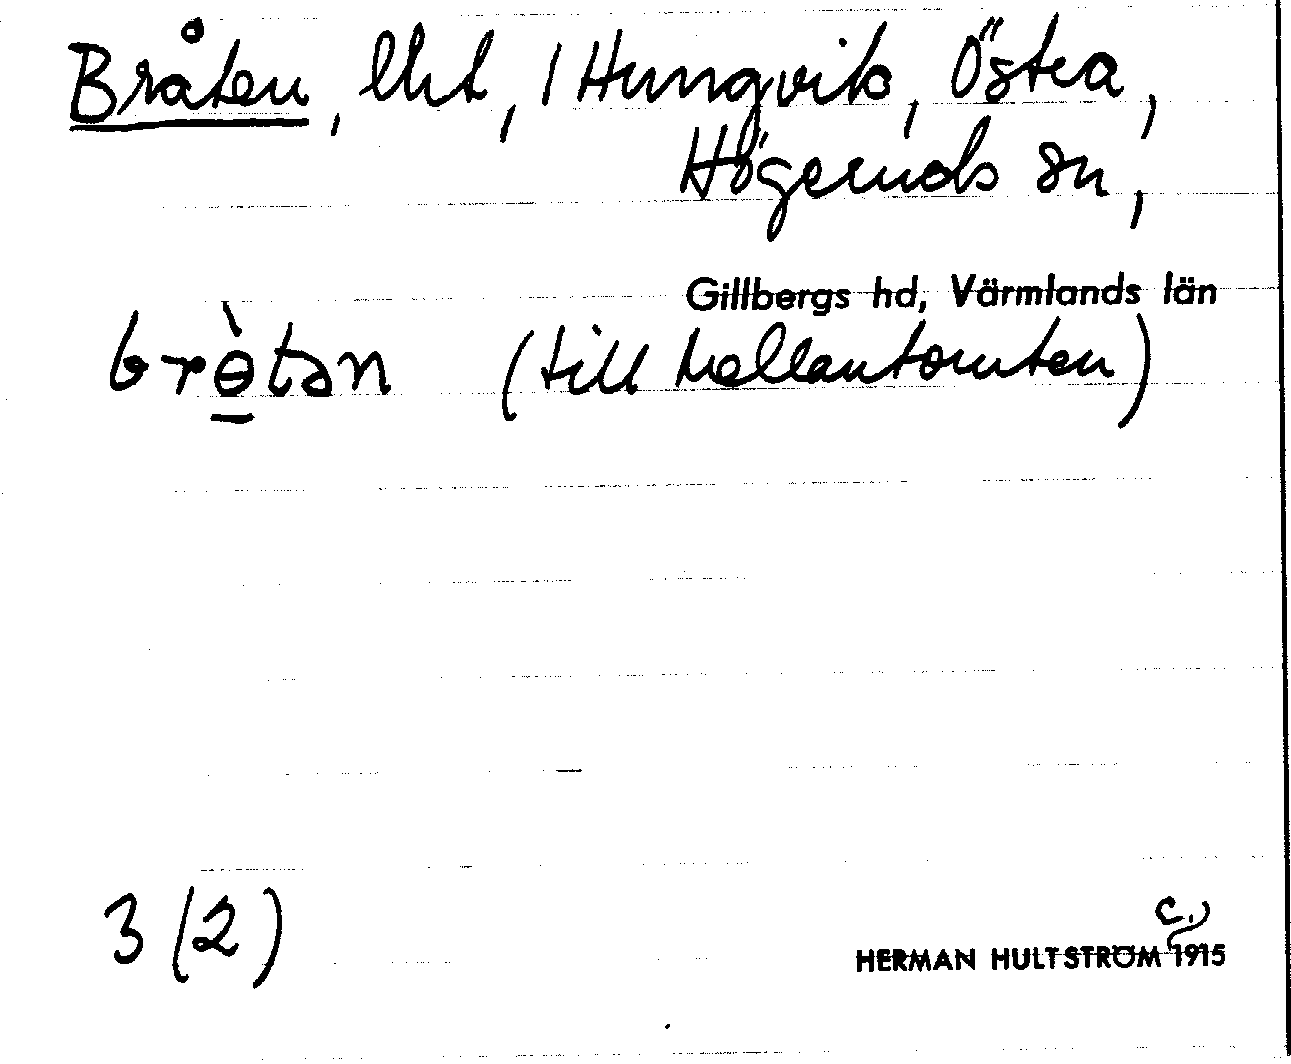 Bråten, lht, i Hungvik, Östra,
Högeruds sn,
Gillbergs hd, Värmlands län
brɵ̀tən (till Mellantomten)
3 (2)
c.
HERMAN HULTSTRÖM 1915